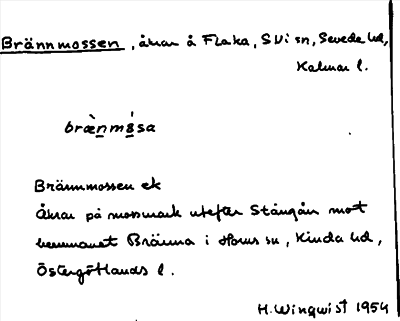 Brännmossen, åkrar å Flaka, S Vi sn, Sevede hd,
Kalmar l.
bræ̀nmǻsa
Brännmossen ek
Åkrar på mossmark utefter Stångån mot
hemmanet Bränna i Horns sn, Kinda hd,
Östergötlands l.
H. Winqwist 1954